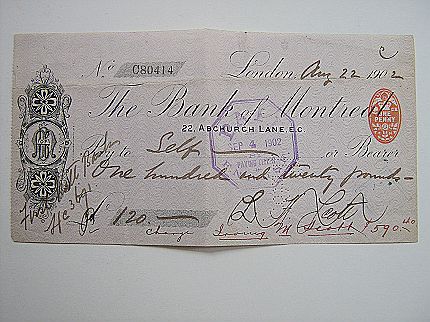 No C80414 London, Aug 22 1902
The Bank of Montreal
22, Abchurch Lane, E.C.
ONE PENNY
SEP 4 1902
Pay to Self or Bearer
One hundred and twenty pounds
£ 120.
Scott
Charge Irving M Scott $590.40